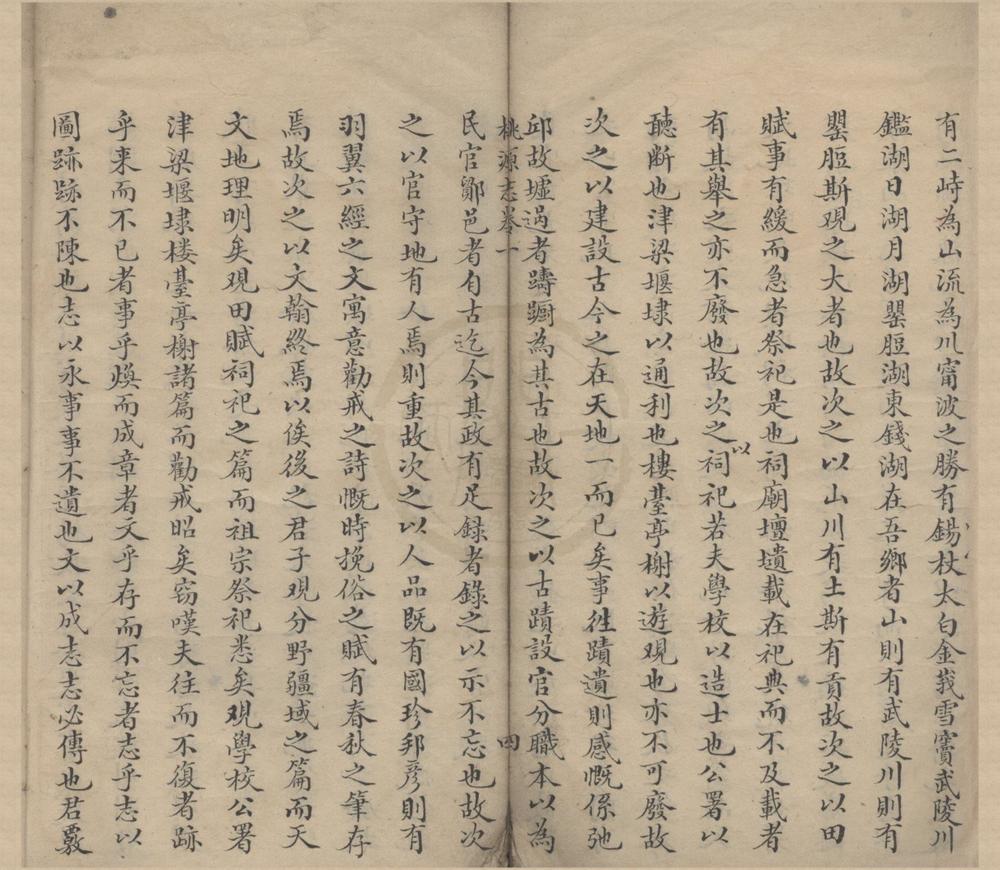 有二峙為山流為川甯波之勝有錫杖太白金莪雪竇武陵川
鑑湖日湖月湖罌脰湖東錢湖在吾鄉者山則有武陵川則有
罌脰斯观之大者也故次之以山川有土斯有貢故次之以田
賦事有緩而急者祭祀是也祠廟壇壝載在祀典而不及載者
有其舉之亦不廢也故次之以祠祀若夫學校以造士也公署以
聽断也津梁堰埭以通利也樓臺亭榭以遊观也亦不可廢故
次之以建設古今之在天地一而已矣事徃蹟遺則感慨係弛
邱故墟過者躊躕為其古也故次之以古蹟設官分職本以為
桃源志卷一
四
民官鄞邑者自古迄今其政有足録者錄之以示不忘也故次
之以官守地有人焉則重故次之以人品既有國珍邦彦則有
羽翼六經之文寓意勸戒之詩慨時挽俗之賦有春秋之筆存
焉故次之以文翰終焉以俟後之君子观分野疆域之篇而天
文地理明矣观田賦祠祀之篇而祖宗祭祀悉矣观學校公署
津梁堰埭楼臺亭榭諸篇而勸戒昭矣窃嘆夫往而不復者跡
乎来而不已者事乎煥而成章者文乎存而不忘者志乎志以
圖跡跡不陳也志以永事事不遺也文以成志志必傳也君覈